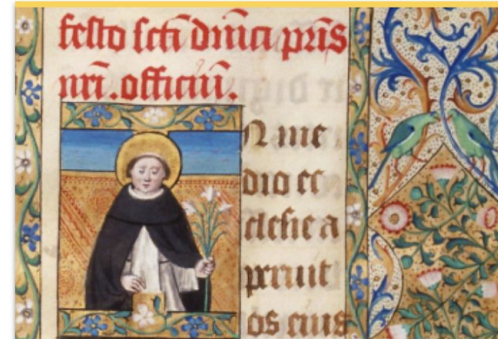 festo scti dmici pris
nri. officiu.
N me
dio ec
clesie a
peruit
os eius